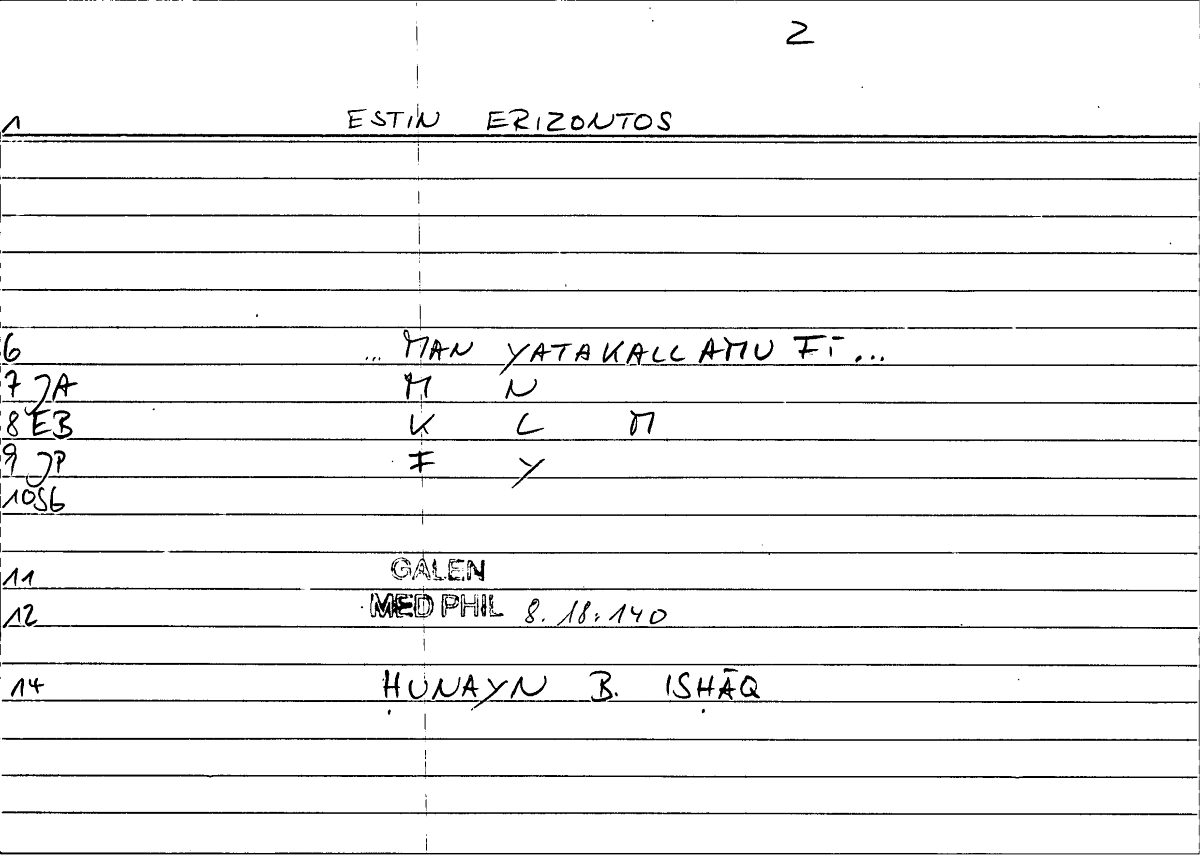 2
1 ESTIN ERIZONTOS
6 ... MAN YATAKALLAMU FĪ ...
7 JA M N
8 EB K L M
9 JP F Y
10 SG
11 GALEN
12 MED PHIL 8.18:140
14 ḤUNAYN B. ISḤĀQ